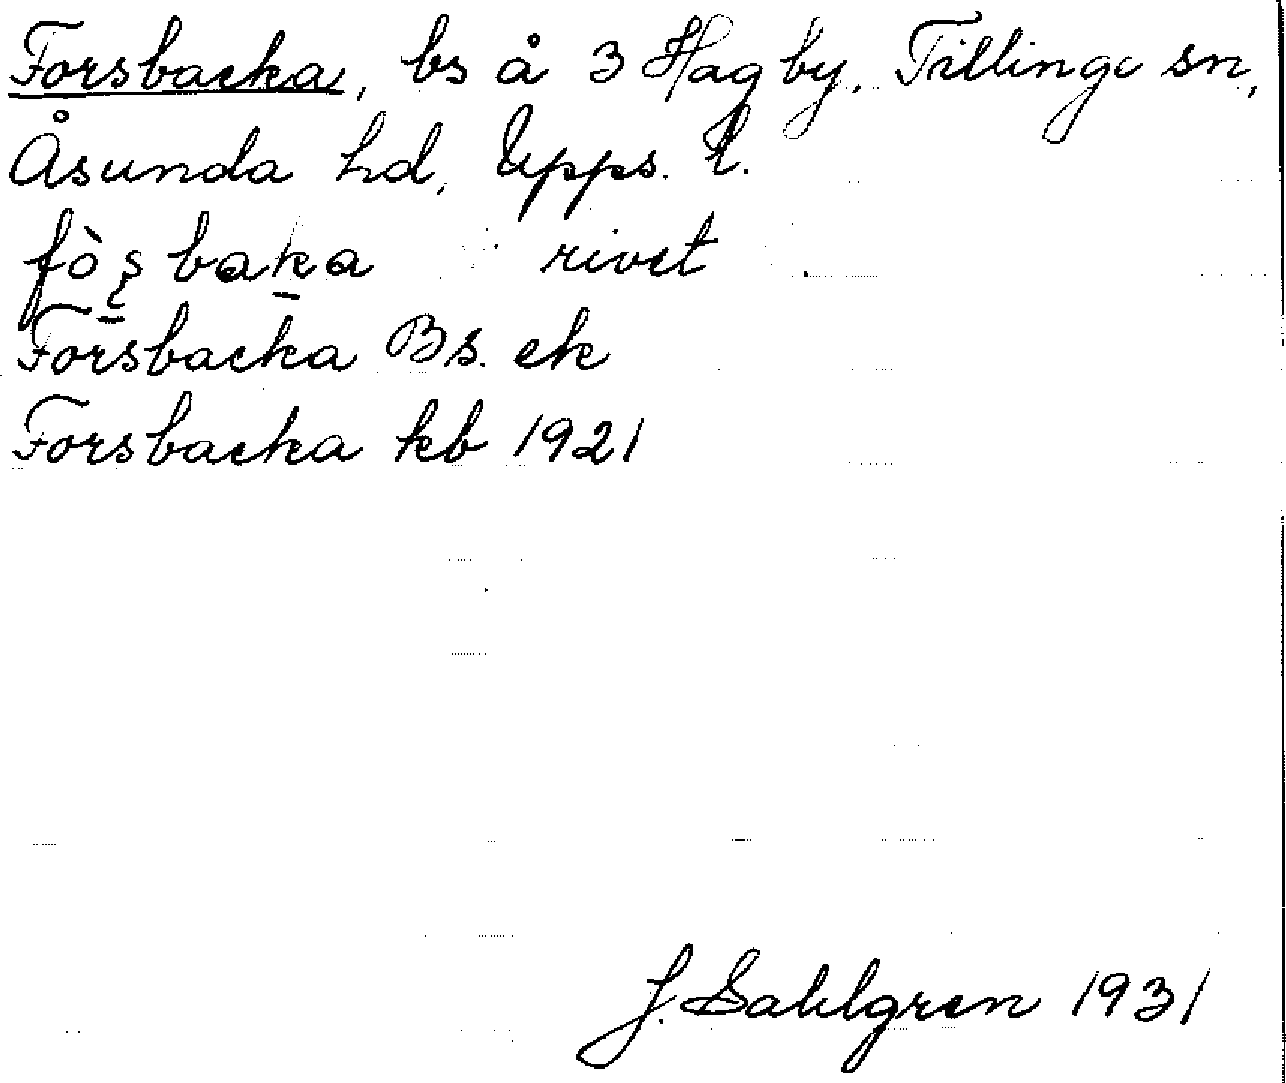 Forsbacka, bs å 3 Hagby, Tillinge sn,
Åsunda hd, Upps. l.
fò̱ʂbaḵa rivet
Forsbacka Bs. ek
Forsbacka kb 1921
J. Sahlgren 1931